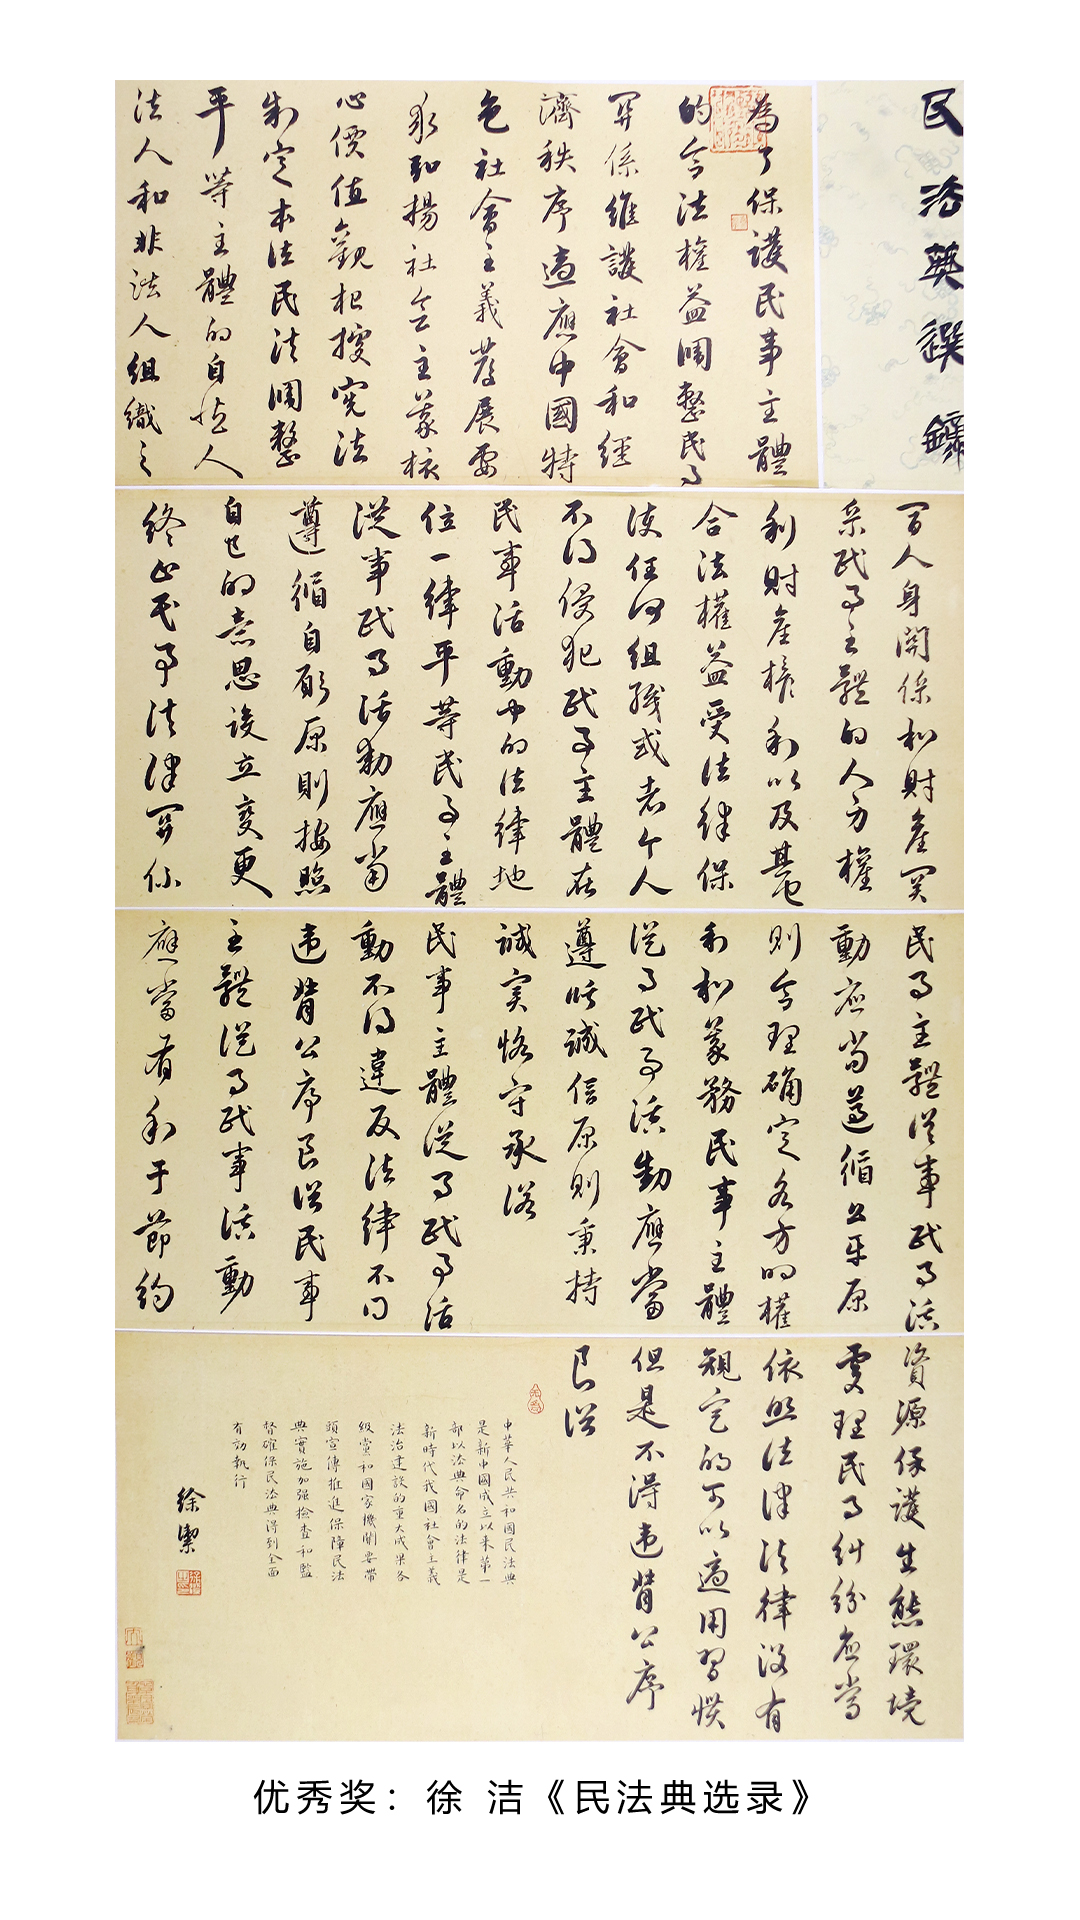 民法典選錄
為了保護民事主體
的合法權益調整民事
關係維護社會和經
濟秩序適應中國特
色社會主義發展要
求弘揚社會主義核
心價值觀根據憲法
制定本法民法調整
平等主體的自然人
法人和非法人組織之
間人身關係和財產關
系民事主體的人身權
利財產權利以及其他
合法權益受法律保
護任何組織或者个人
不得侵犯民事主體在
民事活動中的法律地
位一律平等民事主體
從事民事活動應當
遵循自願原則按照
自己的意思設立變更
終止民事法律關係
民事主體從事民事活
動應當遵循公平原
則合理確定各方的權
利和義務民事主體
從事民事活動應當
遵循誠信原則秉持
誠實恪守承諾
民事主體從事民事活
動不得違反法律不得
违背公序良俗民事
主體從事民事活動
應當有利于節約
資源保護生態環境
處理民事糾紛應當
依照法律法律沒有
規定的可以適用習慣
但是不得违背公序
良俗
中華人民共和國民法典
是新中國成立以來第一
部以法典命名的法律是
新時代我國社會主義
法治建設的重大成果各
級黨和國家機關要帶
頭宣傳推進保障民法
典實施加強檢查和監
督確保民法典得到全面
有効執行
徐潔
优秀奖：徐 洁《民法典选录》